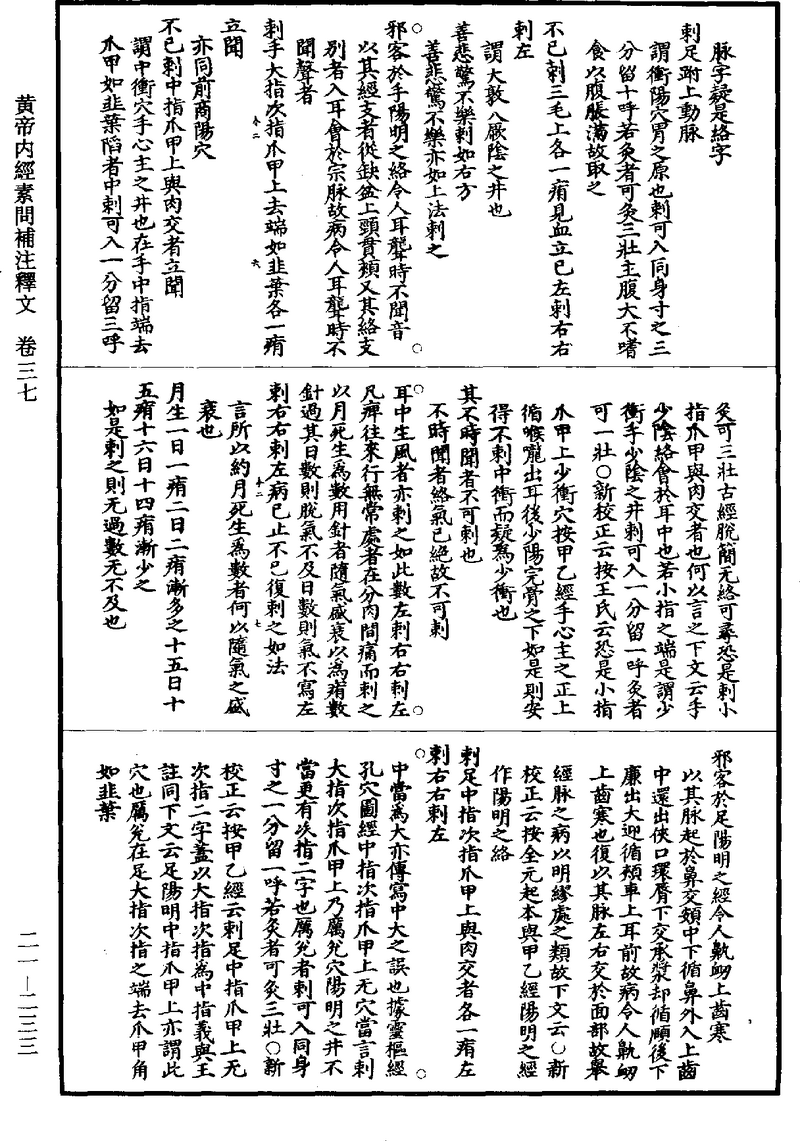 脉字疑是絡字
刺足跗上動脉
謂衝陽穴胃之原也刺可入同身寸之三
分留十呼若灸者可灸三壯主腹大不嗜
食以腹脹滿故取之
不已刺三毛上各一痏見血立已左刺右右
刺左
謂大敦穴厥陰之井也
善悲驚不樂刺如右方
善悲驚不樂亦如上法刺之
邪客於手陽明之絡令人耳聾時不聞音
以其經支者從缺盆上頸貫頰又其絡支
別者入耳會於宗脉故病令人耳聾時不
聞聲者
刺手大指次指爪甲上去端如韭葉各一痏
立聞
亦同前商陽穴
不已刺中指爪甲上與肉交者立聞
謂中衝穴手心主之井也在手中指端去
爪甲如韭葉陷者中刺可入一分留三呼
灸可三壯古經脫簡无絡可尋恐是刺小
指爪甲與肉交者也何以言之下文云手
少陰絡會於耳中也若小指之端是謂少
衝手少陰之井刺可入一分留一呼灸者
可一壯○新校正云按王氏云恐是小指
爪甲上少衝穴按甲乙經手心主之正上
循喉嚨出耳後少陽完骨之下如是則安
得不刺中衝而疑為少衝也
其不時聞者不可刺也
不時聞者絡氣已絕故不可刺
耳中生風者亦刺之如此數左刺右右刺左
凡痹往來行無常處者在分肉間痛而刺之
以月死生為數用針者隨氣盛衰以為痏數
針過其日數則脫氣不及日數則氣不寫左
刺右右刺左病已止不已復刺之如法
言所以約月死生為數者何以隨氣之盛
衰也
月生一日一痏二日二痏漸多之十五日十
五痏十六日十四痏漸少之
如是刺之則无過數无不及也
邪客於足陽明之經令人鼽衂上齒寒
以其脉起於鼻交頞中下循鼻外入上齒
中還出俠口環脣下交承漿却循頤後下
廉出大迎循頰車上耳前故病令人鼽衂
上齒寒也復以其脉左右交於面部故舉
經脉之病以明繆處之類故下文云○新
校正云按全元起本與甲乙經陽明之經
作陽明之絡
刺足中指次指爪甲上與肉交者各一痏左
刺右右刺左
中當為大亦傳寫中大之誤也據靈樞經
孔穴圖經中指次指爪甲上无穴當言刺
大指次指爪甲上乃厲兌穴陽明之井不
當更有次指二字也厲兌者刺可入同身
寸之一分留一呼若灸者可灸三壯○新
校正云按甲乙經云刺足中指爪甲上无
次指二字蓋以大指次指為中指義與王
註同下文云足陽明中指爪甲上亦謂此
穴也厲兌在足大指次指之端去爪甲角
如韭葉
黄帝内經素問補注釋文　卷三七
二一—二三三